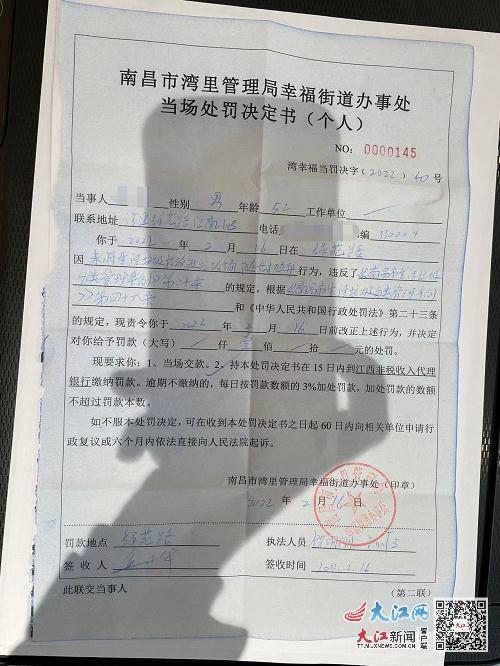 南昌市湾里管理局幸福街道办事处
当场处罚决定书（个人）
NO: 0000145
湾幸福当罚决字（2022）40号
当事人 性别 男 年龄 52 工作单位
联系地址 电话 编
你于 2022 年 2 月 16 日在 绿苑路
因 行为，违反了《南昌市生活垃圾
分类管理条例》第 条 的规定，根据《南昌市生活垃圾分类管理条例
》第四十六条 和《中华人民共和国行政处罚法》第二十三条
的规定，现责令你于 2022 年 2 月 16 日前改正上述行为，并决定
对你给予罚款（大写） 仟 壹 佰 拾 元的处罚。
现要求你：1、当场交款。2、持本处罚决定书在15日内到江西非税收入代理
银行缴纳罚款。逾期不缴纳的，每日按罚款数额的3%加处罚款，加处罚款的数额
不超过罚款本数。
如不服本处罚决定，可在收到本处罚决定书之日起60日内向相关单位申请行
政复议或六个月内依法直接向人民法院起诉。
南昌市湾里管理局幸福街道办事处（印章）
2022 年 2 月 16 日
罚款地点 绿苑路 执法人员
签收人 签收时间 2022.2.16
此联交当事人 （第二联）
大江网
大江新闻 客户端
TT.M.JXNEWS.COM.CN